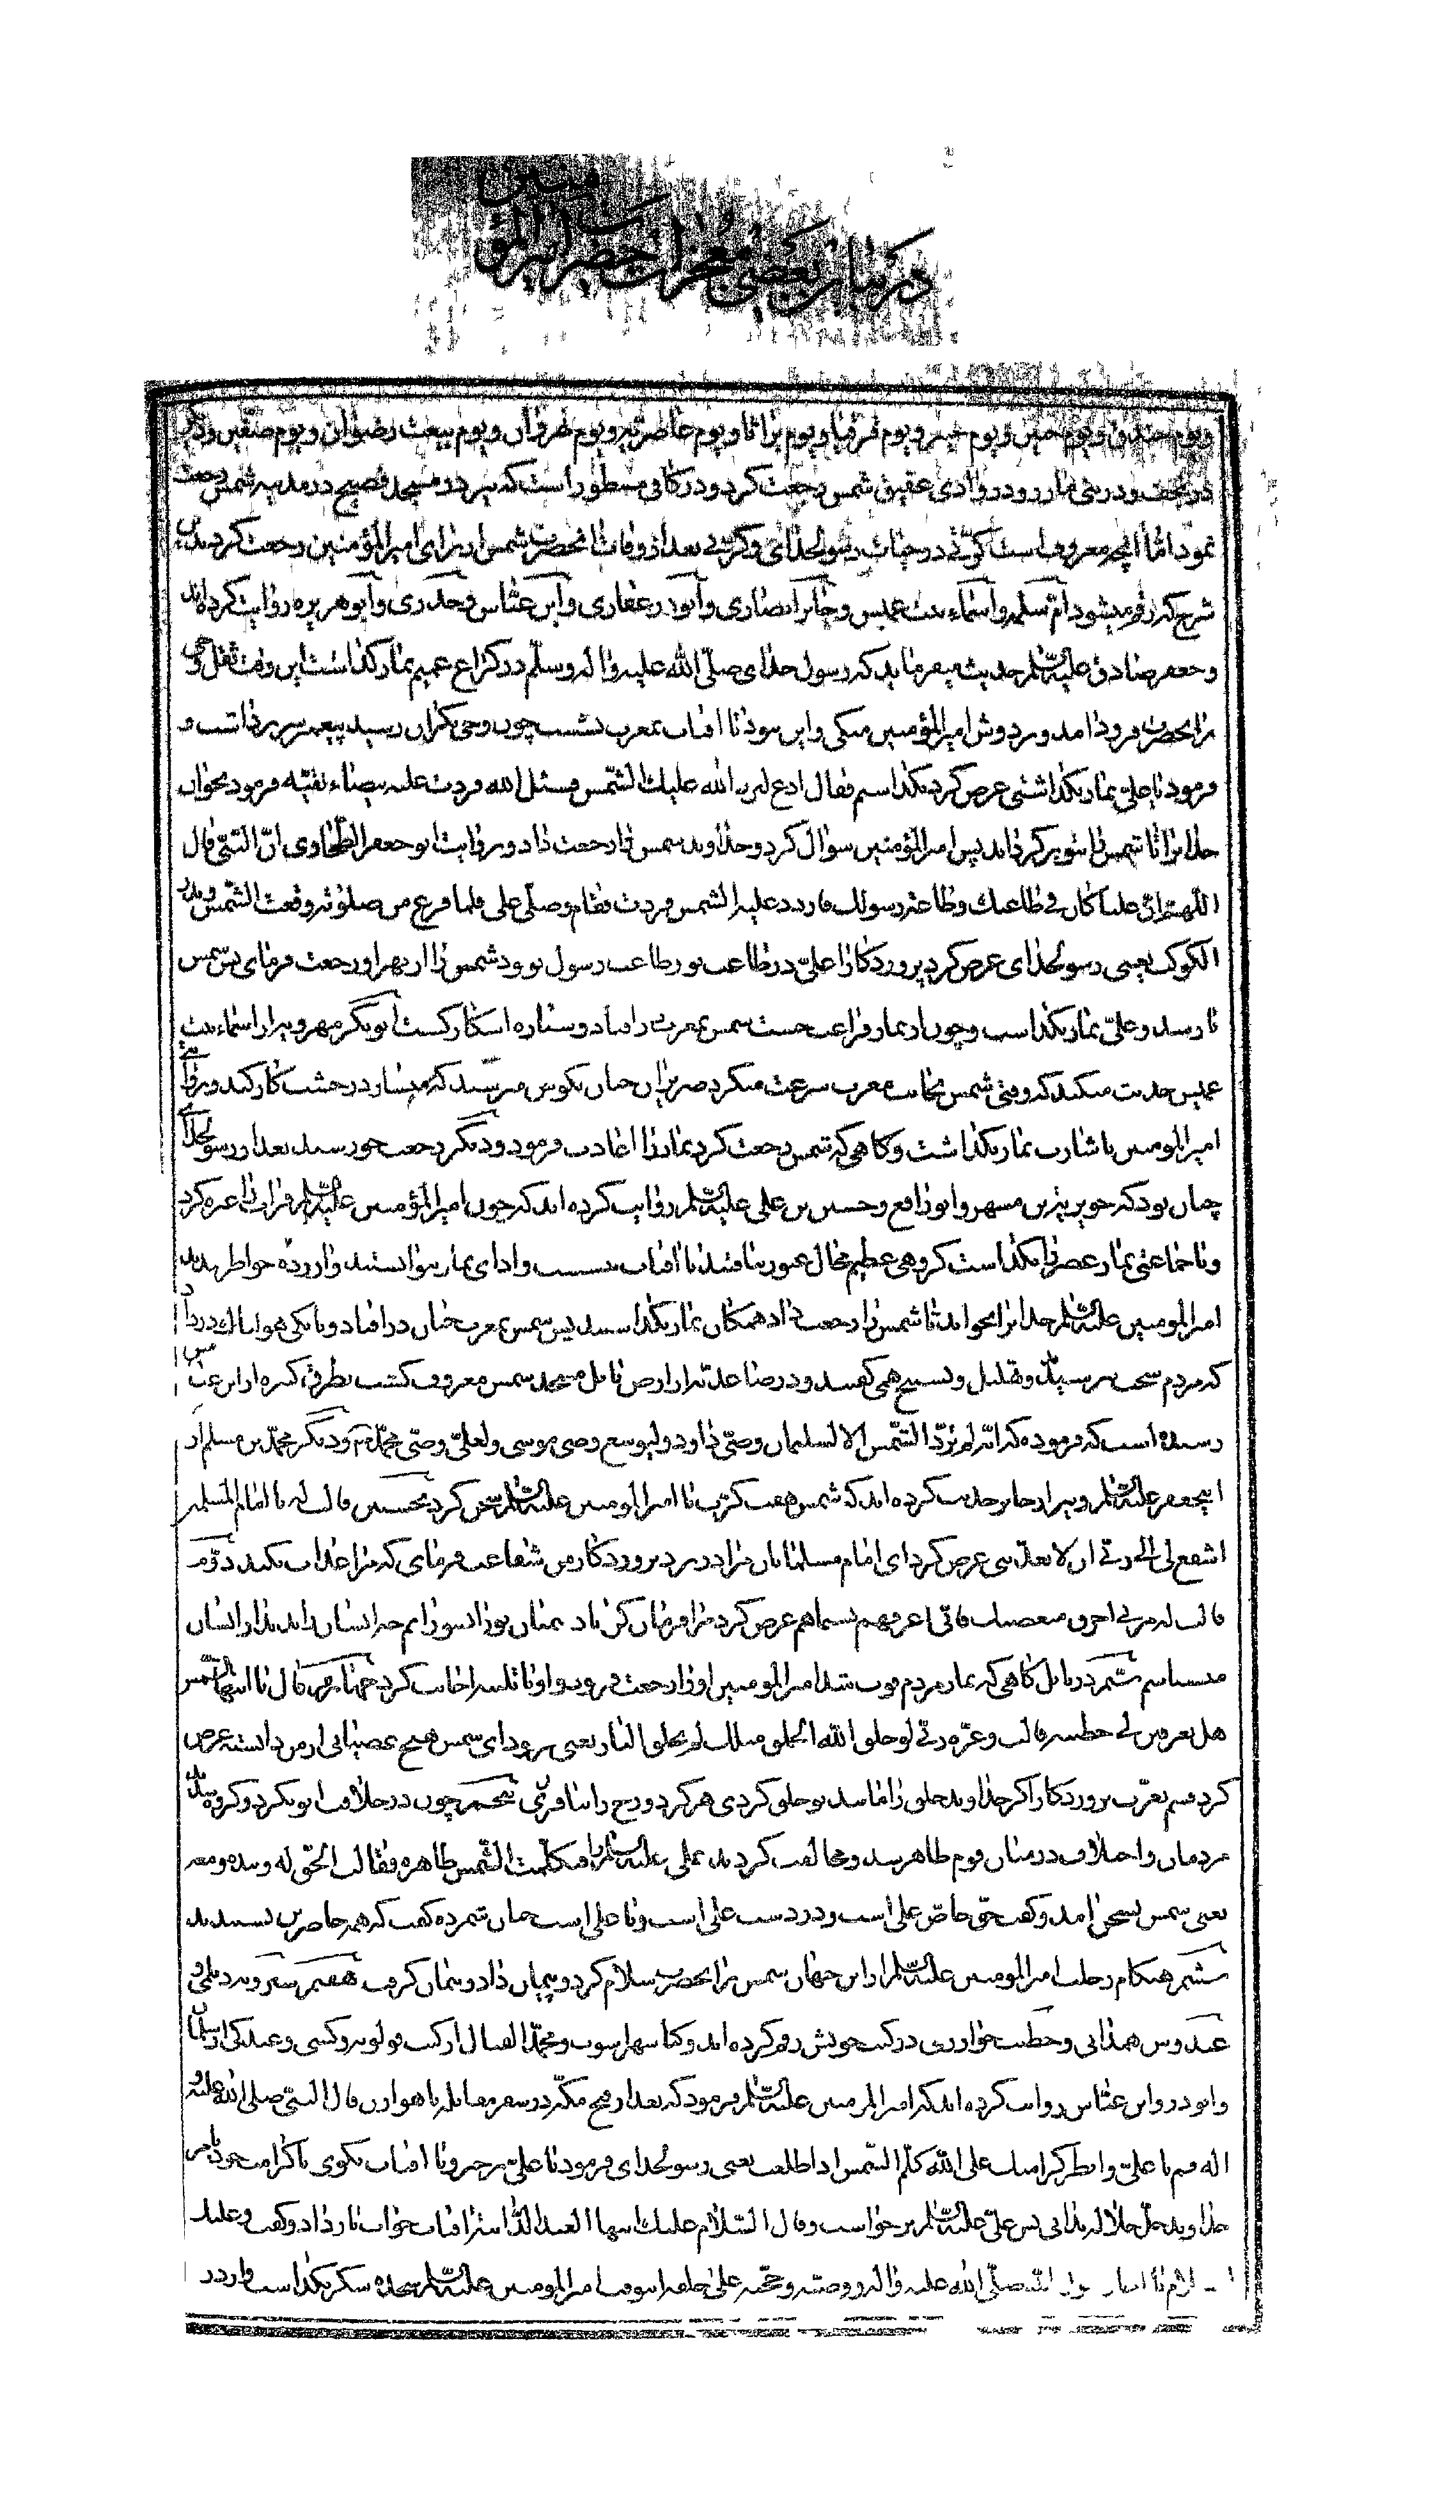 در بیان بعضی معجزات حضرت امیرالمؤمنین
ویوم خندق ویوم حنین ویوم خیبر ویوم قرقیا ویوم براثا ویوم غاضریه ویوم نهروان ویوم بیعت رضوان ویوم صفین ودیگر
در نجف ودر بنی مازر ودر وادی عقیق شمس رجعت کرد ودر کافی مسطور است که نیز در مسجد فضیح در مدینه شمس رجعت
نمود امّا آنچه معروف است کرّتی در حیات رسولخدای وکرّتی بعد از وفات آنحضرت شمس از برای امیرالمؤمنین رجعت کرد بدین
شرح که رقم میشود امّ سلمه واسماء بنت عمیس وجابر انصاری وابوذر غفاری وابن عبّاس وخدری وابوهریره روایت کرده‌اند
وجعفر صادق علیه السّلم حدیث میفرماید که رسول خدای صلّی الله علیه واله وسلّم در کراع عمیم نماز بگذاشت این وقت ثقل وحی
بر آنحضرت فرود آمد وبر دوش امیرالمؤمنین متکی و این ببود تا افتاب بمغرب نشست چون وحی بکران رسید پیغمبر سر برداشت و
فرمود یا علیّ نماز بگذاشتی عرض کرد نگذاشتم فقال ادع لیرد الله علیك الشّمس فسئل الله فردت علیه بیضاء نقیّه فرمود بخوان
خدایرا تا شمس را بسوی تو برگرداند پس امیرالمؤمنین سوال کرد وخداوند شمس را رجعت داد وبروایت ابوجعفر الطّحاوی انّ النّبیّ قال
اللّهم انّ علیّا کان فی طاعتك وطاعة رسولك فاردد علیه الشمس فردت فقام وصلّی علی فلما فرغ من صلوته وقعت الشّمس وبدر
الکوکب یعنی رسولخدای عرض کرد پروردکارا علیّ در طاعت تو ورطاعت رسول تو بود شمس را از بهر او رجعت فرمای پس شمس
باز رسید وعلیّ نماز بگذاشت وچون از نماز فراغت جست شمس بمغرب در افتاد وستاره اشکار کست ابوبکر مهرویه از اسماء بنت
عمیس حدیث میکند که وقتی شمس بجانب مغرب سرعت میکرد صریر ان چنان بکوش میرسید که میشار در خشب کار کند وبروایتی
امیرالمومنین باشارت نماز بگذاشت وکاهی که شمس رجعت کرد نماز را اعادت فرمود ودیگر رجعت خورشید بعد از رسولخدای
چنان بود که جویریة بن مسهر وابورافع وحسین بن علی علیه السّلم روایت کرده‌اند که چون امیرالمؤمنین علیه السّلم فرات را عبره کرد
وبا جماعتی نماز عصر را بگذاشت کروهی عظیم مجال عبور نیافتند تا افتاب بنشست وادای نماز نتوانستند وازرده خواطر بدند
امیرالمومنین علیه السّلم خدایرا بخواند تا شمس را رجعت داد همکان نماز بگذاشتند پس شمس بمغرب چنان در افتاد وبانکی هولناك در داد
که مردم سخت بترسیدند وتهلیل وتسبیح همی گفتند ودر صاعدیه از ارض بابل مسجد شمس معروف گشت بطرق کثیره از ابن عبّاس
رسیده است که فرموده که انّه لم تردّ الشّمس الا لسلیمان وصیّ داود ولیوشع وصی موسی ولعلیّ وصیّ محمّد ودیگر محمّد بن مسلم از
ابیجعفر علیه السّلم ونیز از جابر حدیت کرده‌اند که شمس هفت کرّت با امیرالمومنین علیه السّلم سخن کرد نخستین قالت له یا امام المسلمین
اشفع لی الی ربّی ان لا یعذّبنی عرض کرد ای امام مسلمانان مرا در نزد پروردکار من شفاعت فرمای که مرا عذاب نکند دوّم
قالت له مرنی احرق مبغضیك فانّی اعرفهم بسیماهم عرض کرد مرا فرمان کن تا دشمنان تو را بسوزانم چه ایشان را بدیدار ایشان
میشناسم سیّم در بابل کاهی که نماز مردم فوت شد امیرالمومنین او را رجعت فرمود واو با تلبیه اجابت کرد چهارم قال یا ایتها الشّمس
هل تعرفین لی خطیئه قالت وعزّه ربّی لو خلق الله الخلق مثلك لم یخلق النار یعنی فرمود ای شمس هیچ عصیانی از من دانسته عرض
کرد قسم بعزّت پروردکار اکر خداوند خلق را مانند تو خلق کردی هرگز دوزخ را نیافریدی پنجم چون در خلافت ابوبکر دو کروه شدند
مردمان واختلاف در میان قوم ظاهر شد ومخالفت کردند علی علیه السلام را فتکلّمت الشّمس ظاهره فقالت الحقّ له وبیده ومعه
یعنی شمس بسخن امد وکفت حقّ خاصّ علی است ودر دست علی است وبا علی است چنان شمرده کفت که همه حاضرین بشنیدند
ششم هنکام رحلت امیرالمومنین علیه السّلم از این جهان شمس بر انحضرت سلام کرد وپیمان داد وپیمان کرفت هفتم شیرویه دیلمی و
عبدوس همدانی وخطیب خوارزمی در کتب خویش رقم کرده‌اند
وابوذر وابن عبّاس روایت کرده‌اند که امیرالمومنین علیه السّلم فرمود که بعد از فتح مکّه در سفر مقابله با هوازن قال النّبیّ صلی الله علیه و
اله قم یا علیّ وانظر کرامتك علی الله کلّم الشّمس اذا طلعت یعنی رسولخدای فرمود یا علیّ برخیز وبا افتاب بکوی تا کرامت خود را در نزد
خداوند جلّ جلاله بدانی پس علیّ علیه السّلم برخواست وقال السّلام علیك ایها العبد الدّائب افتاب جواب باز داد وکفت وعلیك
السلام یا اخا رسول الله صلّی الله علیه واله ووصیّه وحجّته علی خلقه امیرالمومنین علیه السّلم سجده شکر بگذاشت